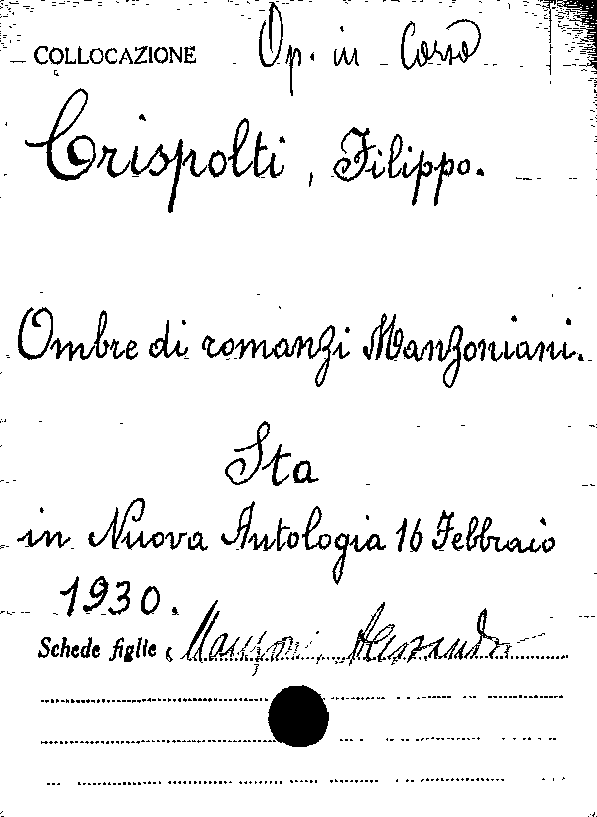 COLLOCAZIONE Op. in Corso
Crispolti, Filippo.
Ombre di romanzi Manzoniani.
Sta
in Nuova Antologia 16 Febbraio
1930.
Schede figlie: Manzoni, Alessandro